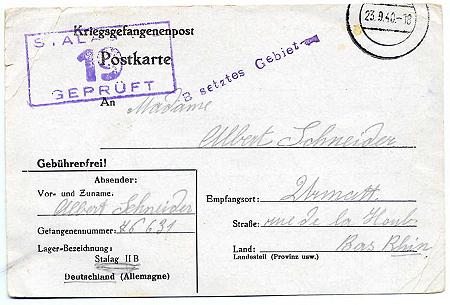 Kriegsgefangenenpost
23.9.40.-18
STALAG
19
GEPRÜFT
Postkarte
B setztes Gebiet
An Madame
Albert Schneider
Gebührenfrei!
Absender:
Vor- und Zuname:
Albert Schneider
Gefangenennummer: 26631
Lager-Bezeichnung:
Stalag II B
Deutschland (Allemagne)
Empfangsort: Urmatt
Straße: rue de la
Land: Bas Rhin
Landesteil (Provinz usw.)